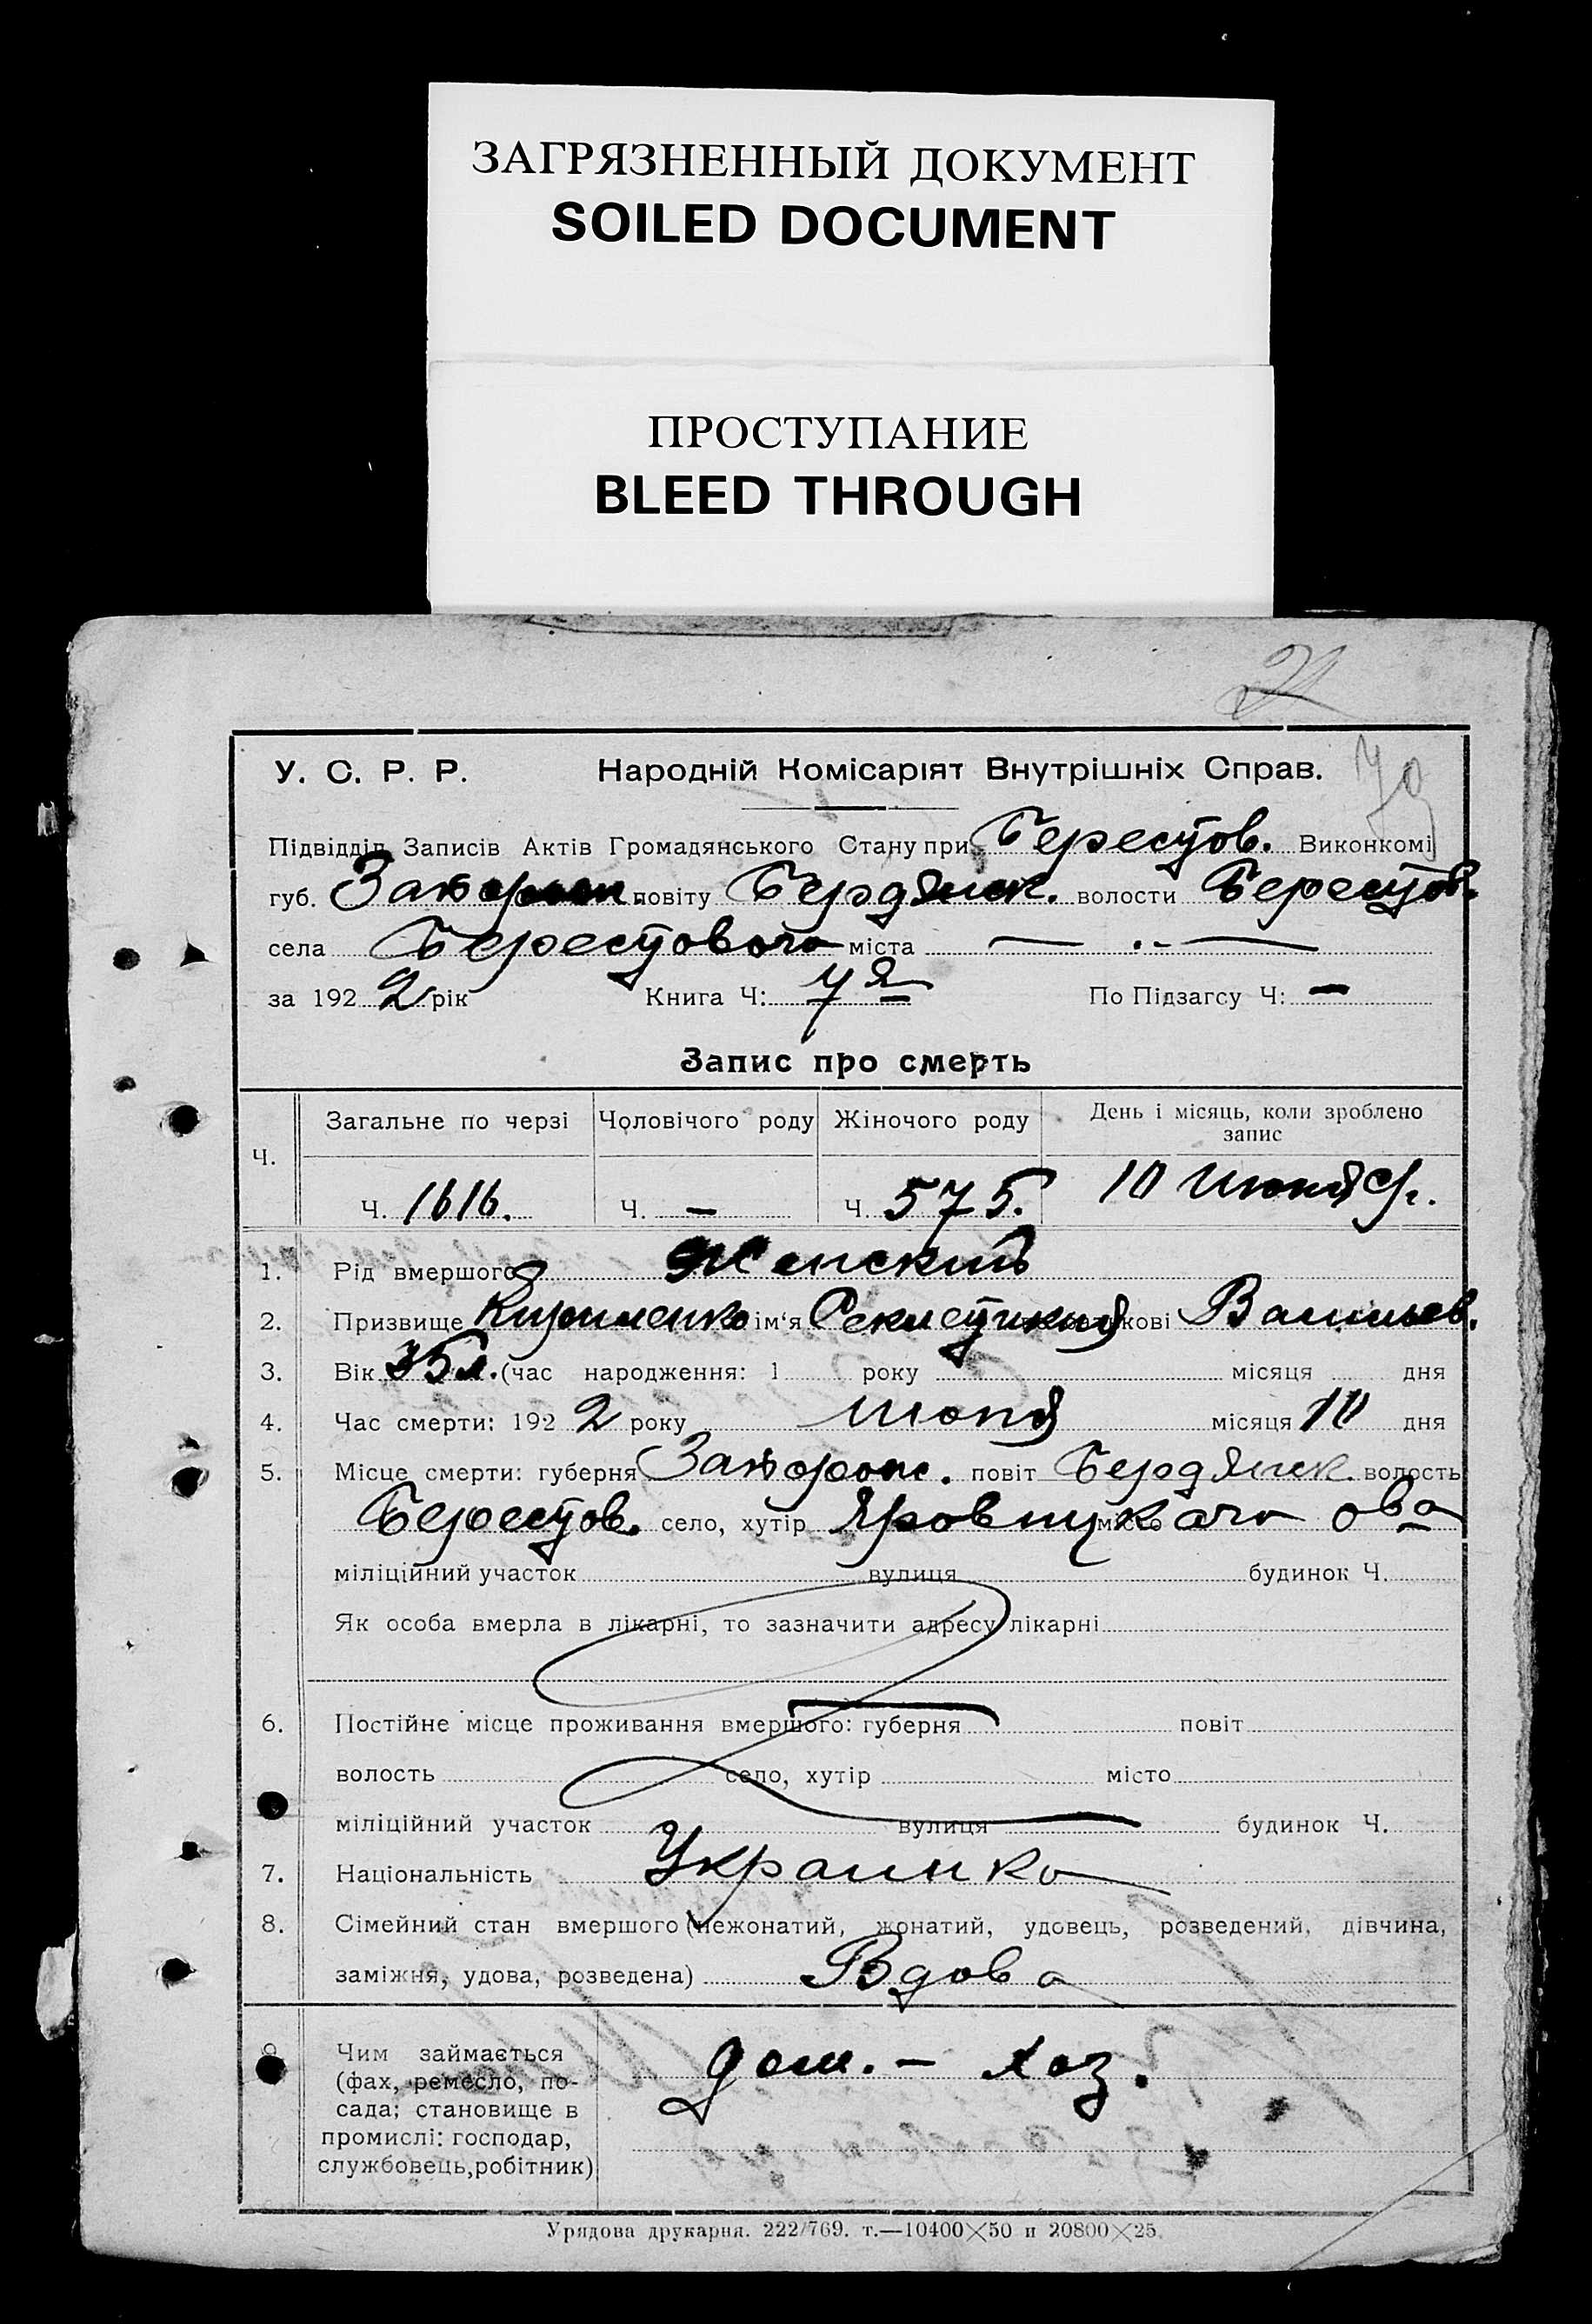 ЗАГРЯЗНЕННЫЙ ДОКУМЕНТ
SOILED DOCUMENT
ПРОСТУПАНИЕ
BLEED THROUGH
21
79
У. С. Р. Р. Народній Комісаріят Внутрішніх Справ.
Підвідділ Записів Актів Громадянського Стану при Берестов. Виконкомі
губ. Запорож. повіту Бердянск. волости Берестов.
села Берестового міста —
за 1922 рік Книга Ч: 7я По Підзагсу Ч: —
Запис про смерть
Загальне по черзі Чоловічого роду Жіночого роду День і місяць, коли зроблено
запис
Ч.
Ч. 1616. Ч. — Ч. 575. 10 июня
1. Рід вмершого Женский
2. Призвище Кириленко ім'я по батькові Васильев.
3. Вік 35 л. (час народження: 1 року місяця дня
4. Час смерти: 1922 року июня місяця 10 дня
5. Місце смерти: губерня Запорож. повіт Бердянск. волость
Берестов. село, хутір місто
міліційний участок вулиця будинок Ч.
Як особа вмерла в лікарні, то зазначити адресу лікарні
6. Постійне місце проживання вмершого: губерня повіт
волость село, хутір місто
міліційний участок вулиця будинок Ч.
7. Національність Украинка
8. Сімейний стан вмершого (нежонатий, жонатий, удовець, розведений, дівчина,
заміжня, удова, розведена) Вдова
9. Чим займається
(фах, ремесло, по-
сада; становище в
промислі: господар,
службовець, робітник)
дом. - хоз.
Урядова друкарня. 222/769. т.—10400×50 и 20800×25.